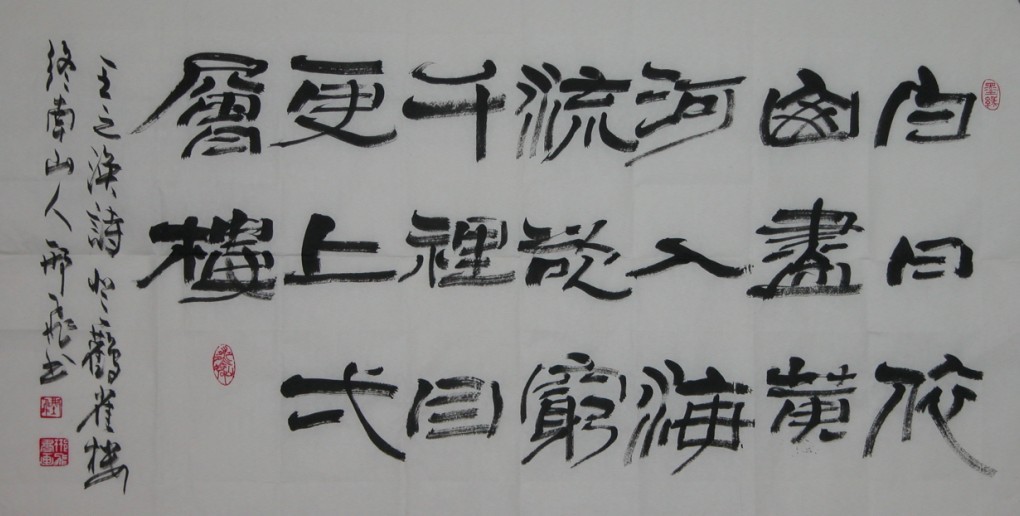 白日依
山盡黃
河入海
流欲窮
千裡目
更上弌
層樓
王之渙詩登鸛雀樓
終南山人邢飛书